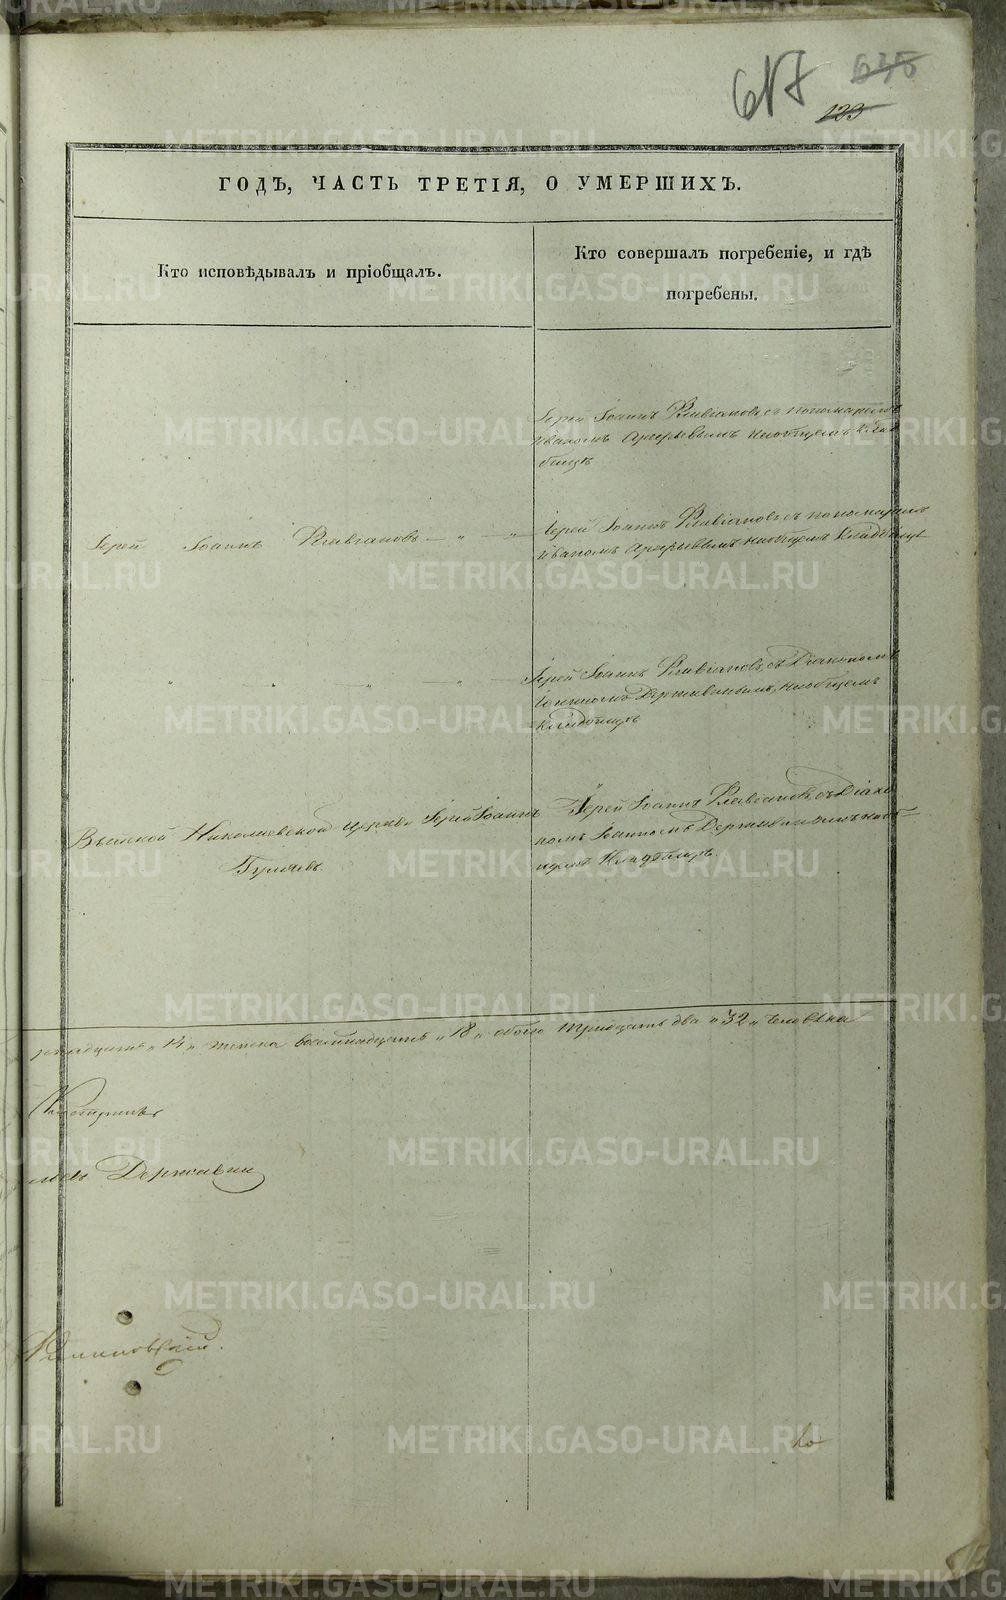 617 635
123
ГОДЪ, ЧАСТЬ ТРЕТІЯ, О УМЕРШИХЪ.
Кто исповѣдывалъ и пріобщалъ.
Кто совершалъ погребеніе, и гдѣ
погребены.
Іерей Іоаннъ Флавіановъ съ пономаремъ
Иваномъ наобщемъ клад
бищѣ
Іерей Іоаннъ Флавіановъ " "
Іерей Іоаннъ Флавіановъ съ пономаремъ
Иваномъ наобщемъ Кладбищѣ
" " "
Іерей Іоаннъ Флавіановъ, съ Діакономъ
Іоанномъ Державинымъ, наобщемъ
Кладбищѣ
Выйской Николаевской церкви Іерей Іоаннъ
Іерей Іоаннъ Флавіановъ съ Діако
номъ Іоанномъ Державинымъ наоб
щемъ Кладбищѣ
"14" женска восемнадцать "18" обоего тридцать два "32" человѣка
Державин
METRIKI.GASO-URAL.RU